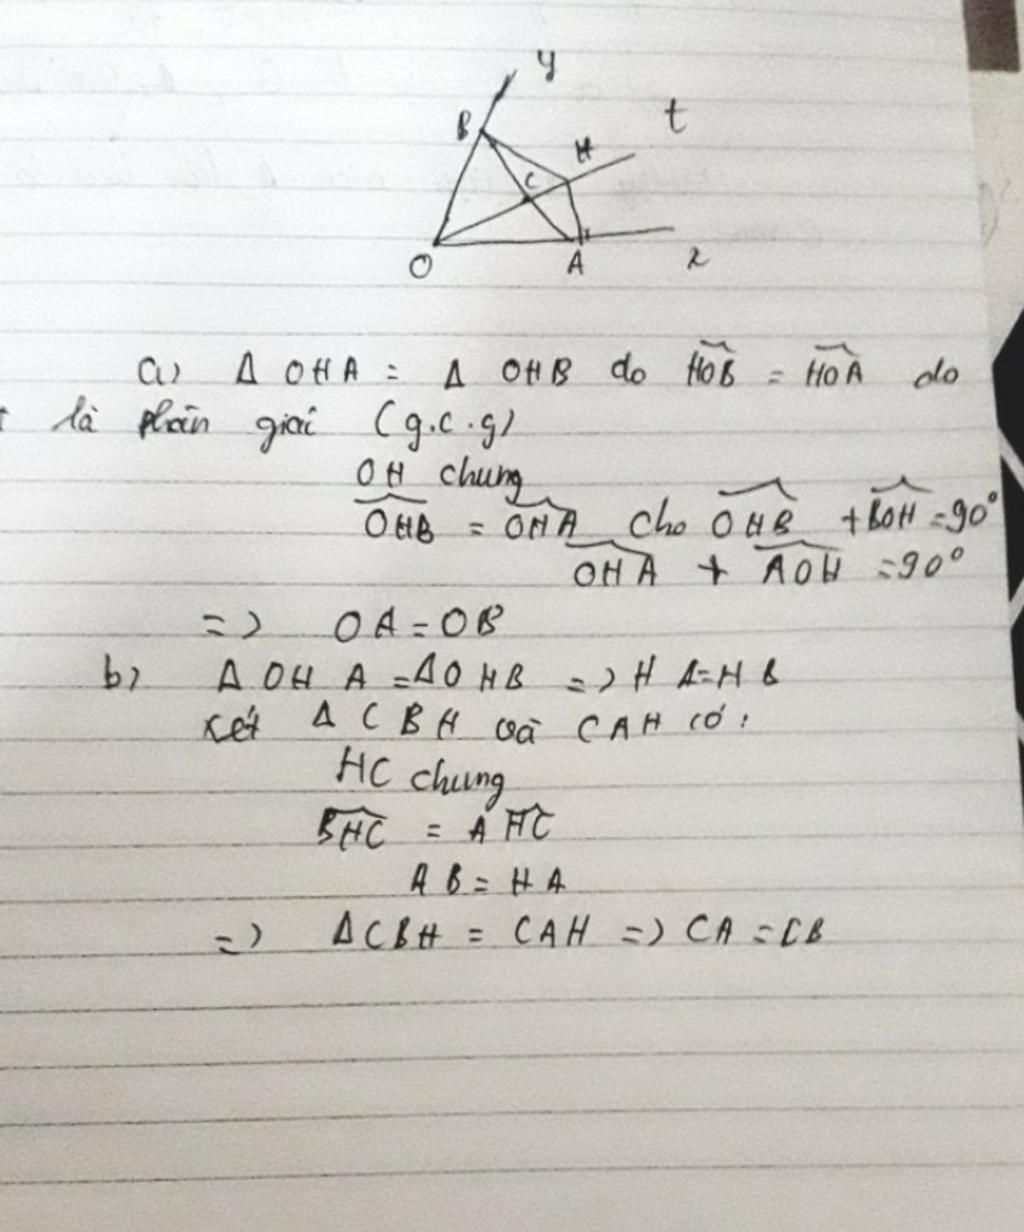 y
B
H
t
C
O
A
x
a) Δ OHA = Δ OHB do HOB = HOA do
t là phân giác (g.c.g)
OH chung
OHB = OHA cho OHB + BOH = 90°
OHA + AOH = 90°
=> OA = OB
b) Δ OHA = Δ OHB => HA = HB
xét Δ CBH và CAH có:
HC chung
BHC = AHC
AB = HA
=> Δ CBH = CAH => CA = CB